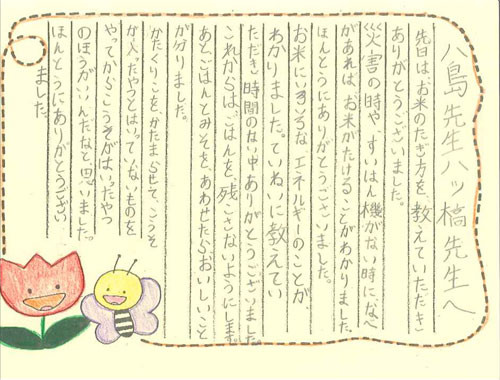 八島先生八ッ橋先生へ
先日は、お米のたき方を、教えていただき
ありがとうございました。
災害の時や、すいはん機がない時に、なべ
があれば、お米がたけることがわかりました。
ほんとうにありがとうございました。
お米にいろいろな、エネルギーのことが、
わかりました。ていねいに教えてい
ただき時間のない中ありがとうございました。
これからは、ごはんを、残ごさないようにします。
あとごはんとみそを、あわせたらおいしいこと
が分りました。
かたくりこを、かたまらせて、こうそ
が入ったやつとはいっていないものを
やってからこうそがはいったやつ
のほうがいんだなと思いました。
ほんとうにありがとうござい
ました。